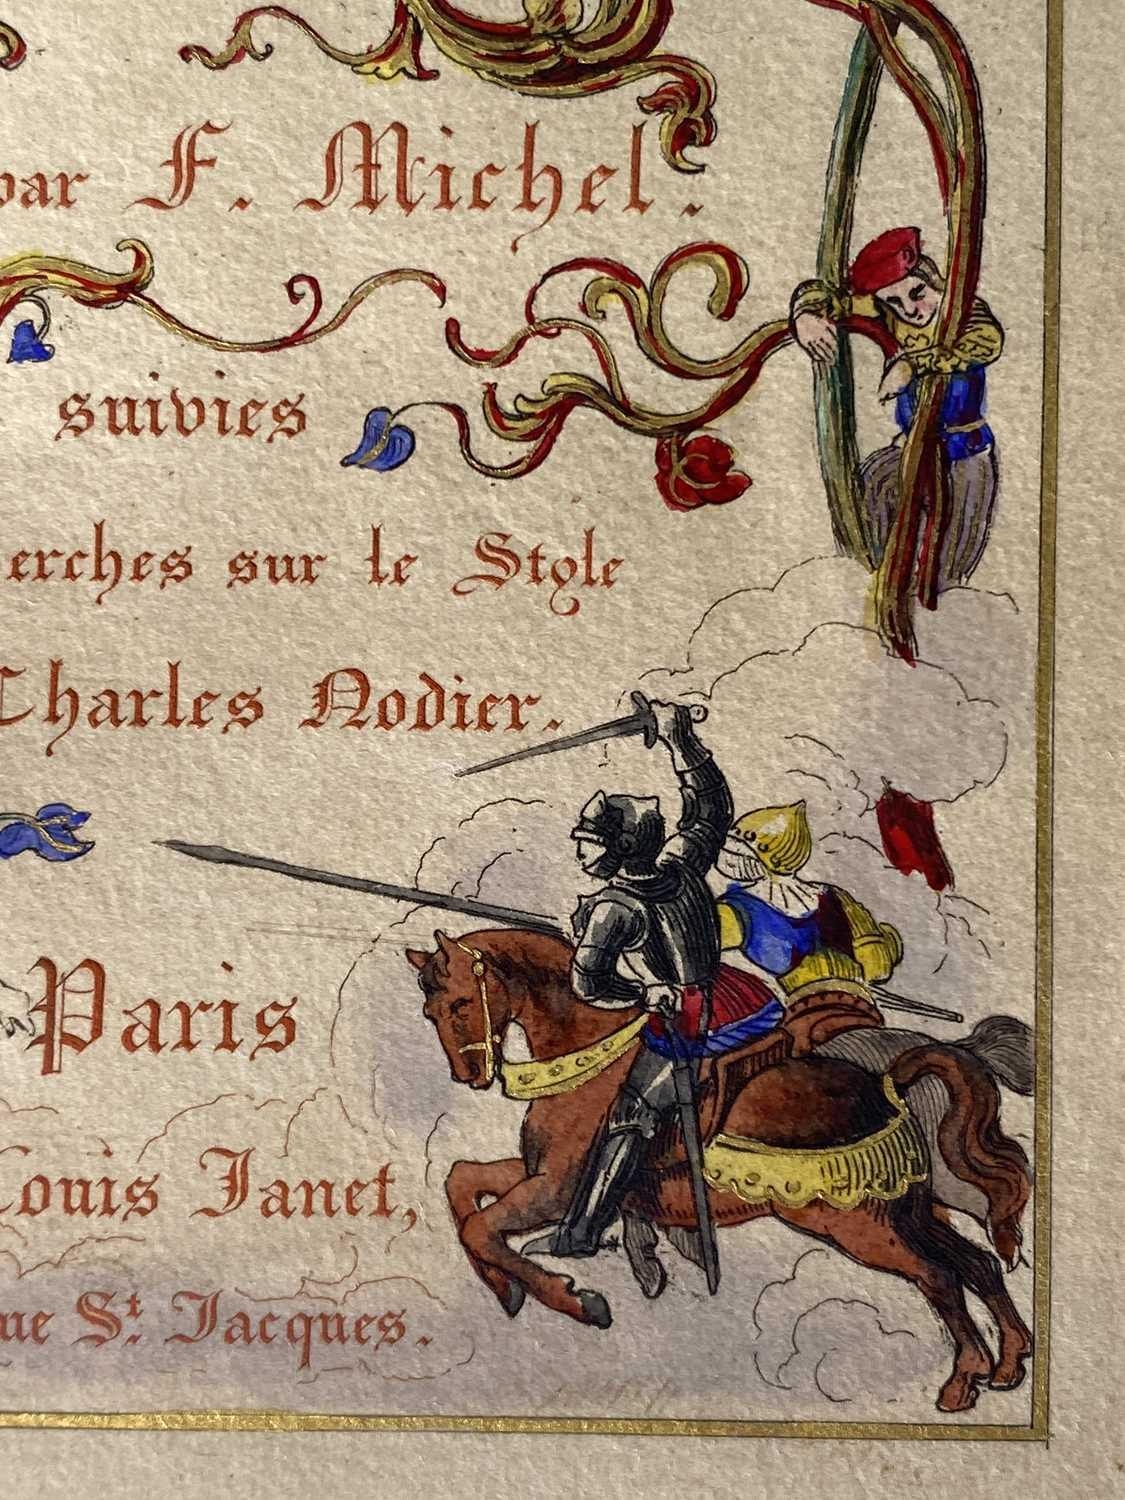 par F. Michel.
suivies
erches sur le Style
Charles Nodier.
Paris
Louis Janet,
ue St. Jacques.